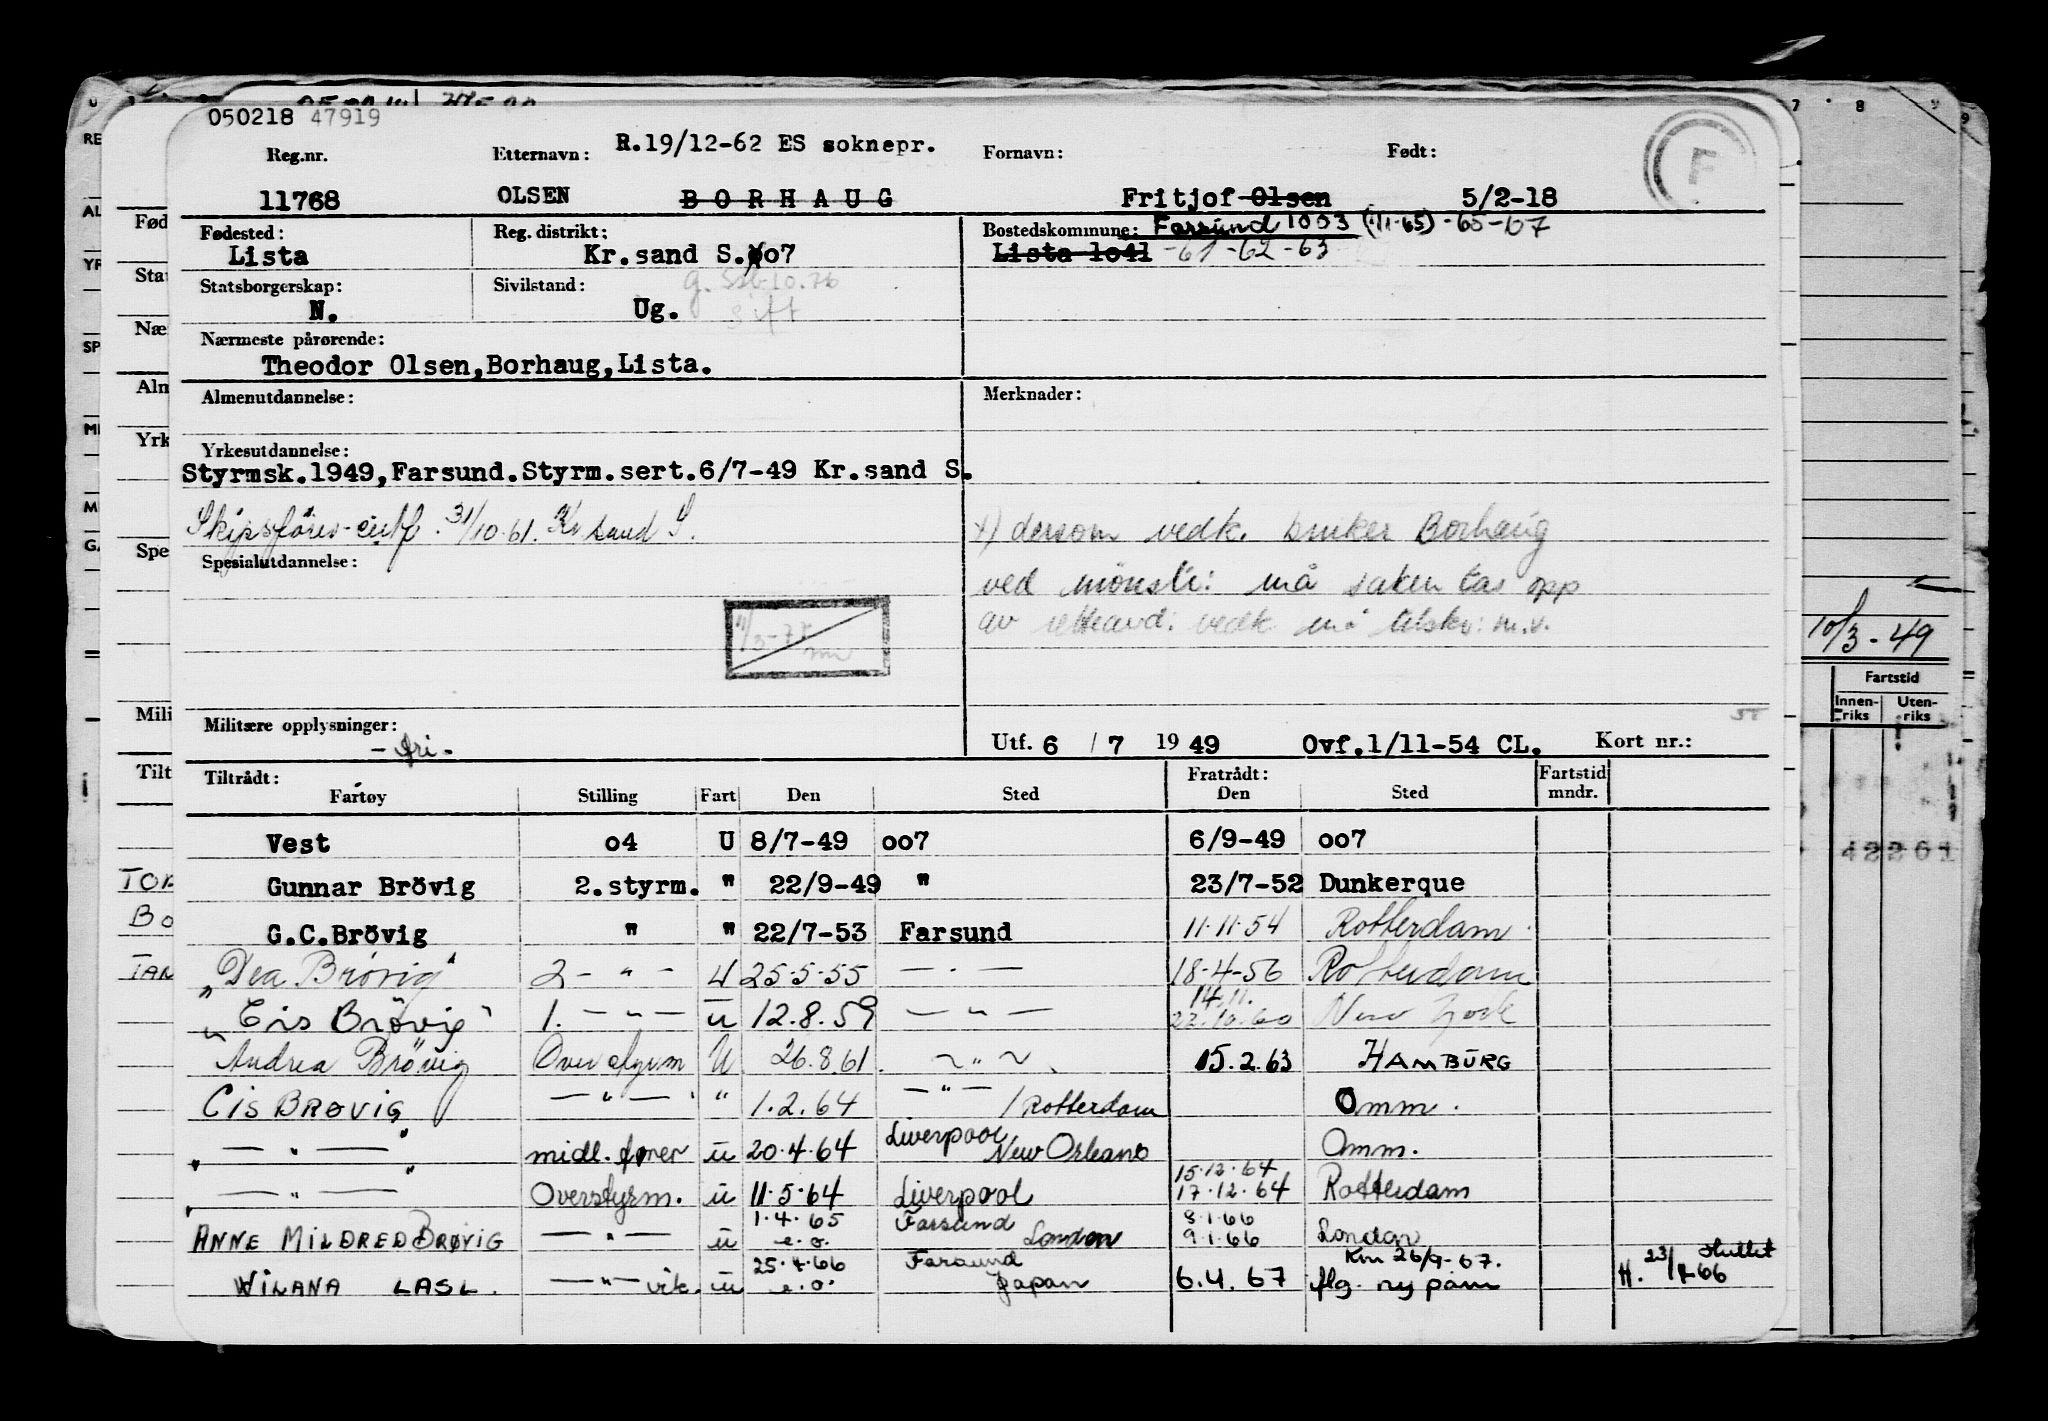 050218 47919
Reg.nr. Etternavn: R.19/12-62 ES soknepr. Fornavn: Født: F
11768 OLSEN BORHAUG Fritjof Olsen 5/2-18
Fødested: Reg. distrikt: Bostedskommune: Farsund 1003 (1/1-65) -65-67
Lista Kr.sand S. oo7 Lista 1o41 -61-62-63
Statsborgerskap: Sivilstand: g.
N. Ug. gift
Nærmeste pårørende:
Theodor Olsen,Borhaug,Lista.
Almenutdannelse: Merknader:
Yrkesutdannelse:
Styrmsk.1949,Farsund.Styrm.sert.6/7-49 Kr.sand S.
Skipsförer-sertf. 31/10.61. Kr sand S.
x) dersom vedk. bruker Borhaug
Spesialutdannelse:
ved mönstr: må saken tas opp
av vedk. må
Militære opplysninger:
- fri -
Utf. 6 / 7 19 49 Ovf.1/11-54 CL. Kort nr.:
Tiltrådt: Fratrådt: Fartstid
Fartøy Stilling Fart Den Sted Den Sted mndr.
Vest o4 U 8/7-49 oo7 6/9-49 oo7
Gunnar Brövig 2.styrm. " 22/9-49 " 23/7-52 Dunkerque
G.C.Brövig " " 22/7-53 Farsund 11.11.54 Rotterdam
"Dea Brøvig" 2 - " - U 25.5.55 — . — 18-4-56 Rotterdam
14.11.
"Cis Brøvig" 1. — " — u 12.8.59 — " — 22.10.60 New York
Andrea Brövig Overstyrm U 26.8.61 ~ " ~ 15.2.63 HAMBURG
CIS BRØVIG — " — " 1.2.64 — " — / Rotterdam Omm.
" — " — " midl. fører u 20.4.64 Liverpool New Orleans Omm.
15.12.64
" — " — " Overstyrm. u 11.5.64 Liverpool 17.12.64 Rotterdam
1.4.65 Farsund 8.1.66
ANNE MILDRED BRØVIG — " — u e.o. London 9.1.66 London
25.4.66 Farsund Km 26/9-67. sluttet
WILANA LASL. — " — vik. u e.o. Japan 6.4.67 flg. ny pam H. 23/4-66
10/3-49
Fartstid
Innenriks Utenriks
42261